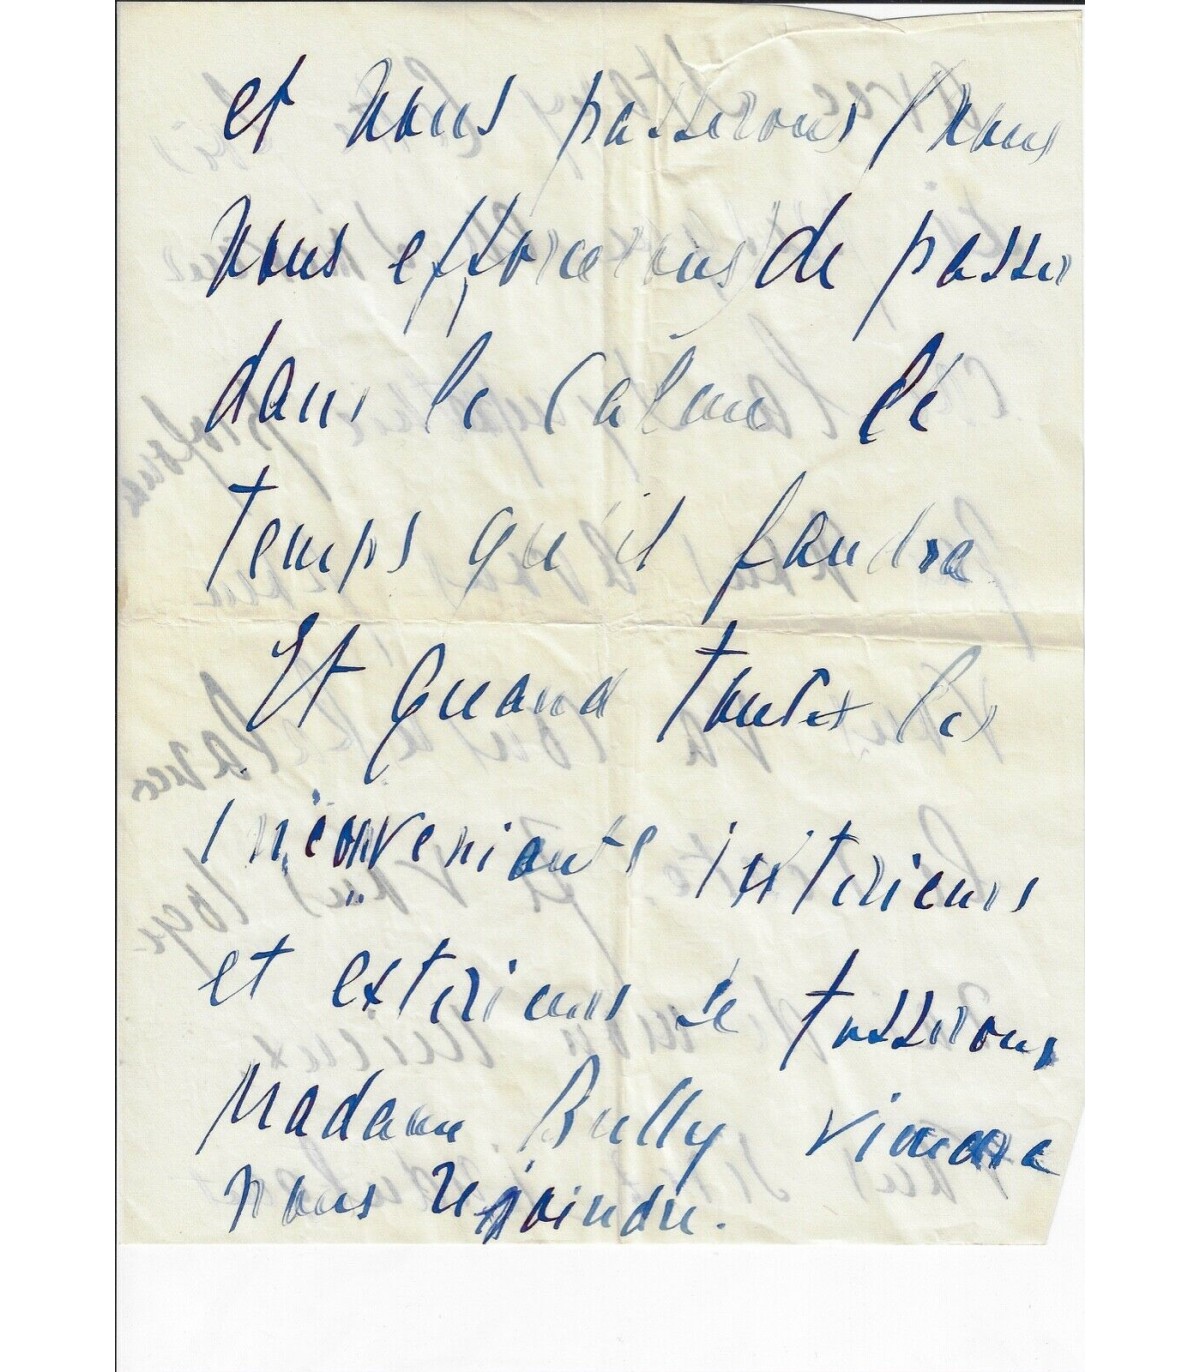 et nous passerons (nous
nous efforcerons) de passer
dans le calme le
temps qu'il faudra
Et quand toutes les
inconveniants intérieurs
et exterieurs se tasserons
Madame Bully viendra
nous rejoindre.